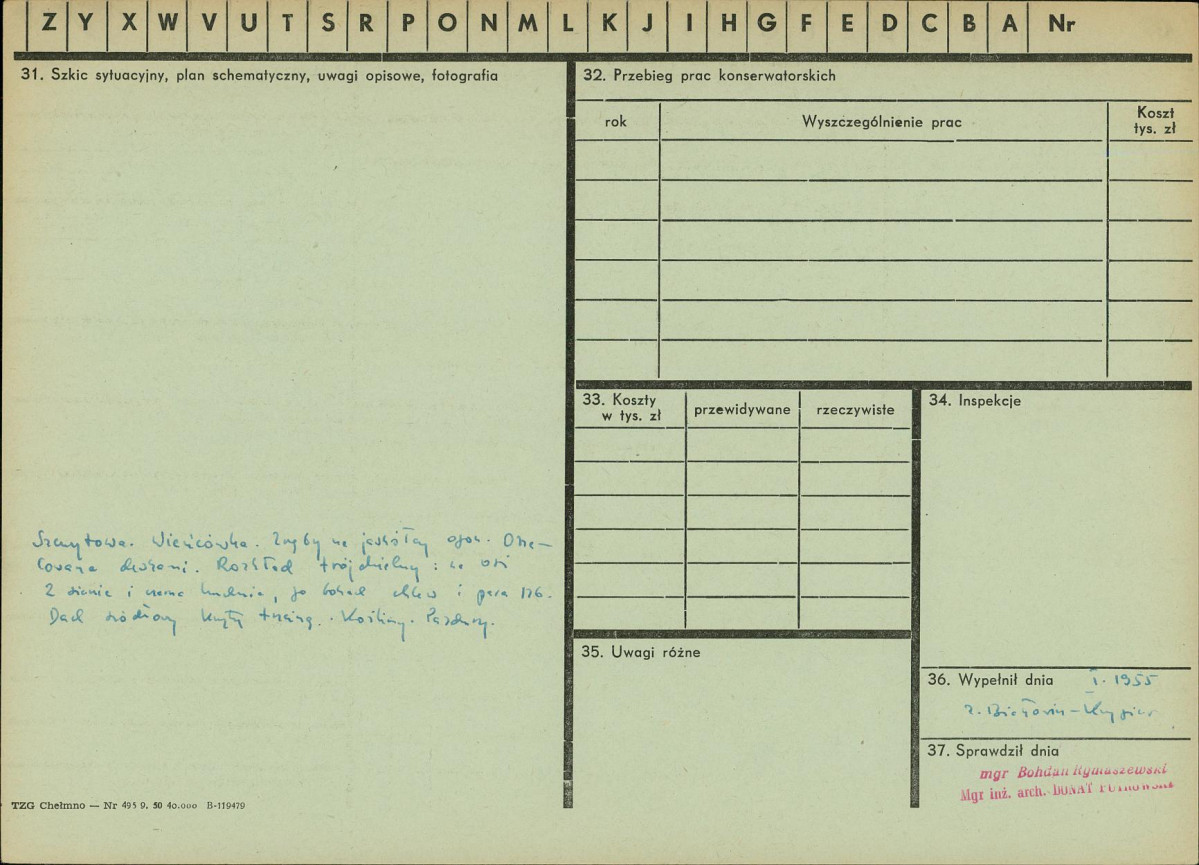 Z Y X W V U T S R P O N M L K J I H G F E D C B A Nr
31. Szkic sytuacyjny, plan schematyczny, uwagi opisowe, fotografia
Szczytowa. Wieńcówka. Zręby na jaskółczy ogon.
Rozkład trójdzielny: na osi
2 sienie i czarna kuchnia, po bokach i para izb.
Dach kryty trzciną. Kośliny. Pazdury.
TZG Chełmno — Nr 495 9. 50 40.000 B-119479
32. Przebieg prac konserwatorskich
rok
Wyszczególnienie prac
Koszt
tys. zł
33. Koszty
w tys. zł
przewidywane
rzeczywiste
34. Inspekcje
35. Uwagi różne
36. Wypełnił dnia I. 1955
37. Sprawdził dnia
mgr Bohdan Rymaszewski
Mgr inż. arch. DONAT